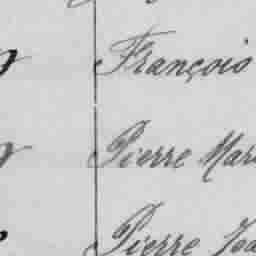 François
Pierre Mar
Pierre Jea